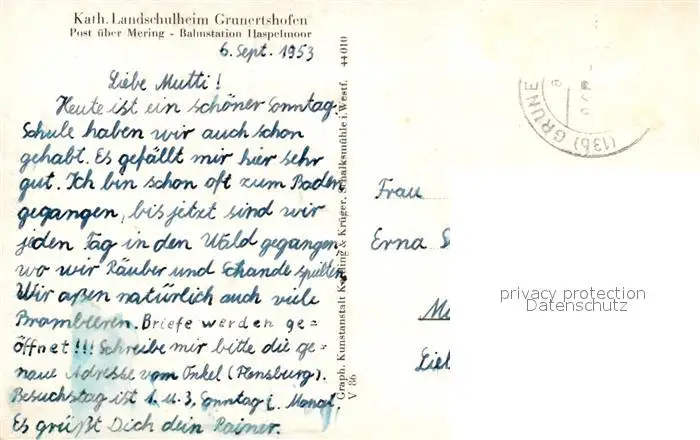 Kath. Landschulheim Grunertshofen
Post über Mering - Bahnstation Haspelmoor
6. Sept. 1953
Liebe Mutti!
Heute ist ein schöner Sonntag.
Schule haben wir auch schon
gehabt. Es gefällt mir hier sehr
gut. Ich bin schon oft zum Baden
gegangen, bis jetzt sind wir
jeden Tag in den Wald gegangen
wo wir Räuber und Schande spielten.
Wir aßen natürlich auch viele
Brombeeren. Briefe werden ge=
öffnet!!! Schreibe mir bitte die ge=
naue Adresse vom Onkel (Flensburg).
Besuchstag ist 1. u. 3. Sonntag i. Monat.
Es grüßt Dich dein Rainer.
Graph. Kunstanstalt & Krüger, Schalksmühle i. Westf. 44010
V 86
(13b) GRUNE
Frau
Erna
privacy protection
Datenschutz